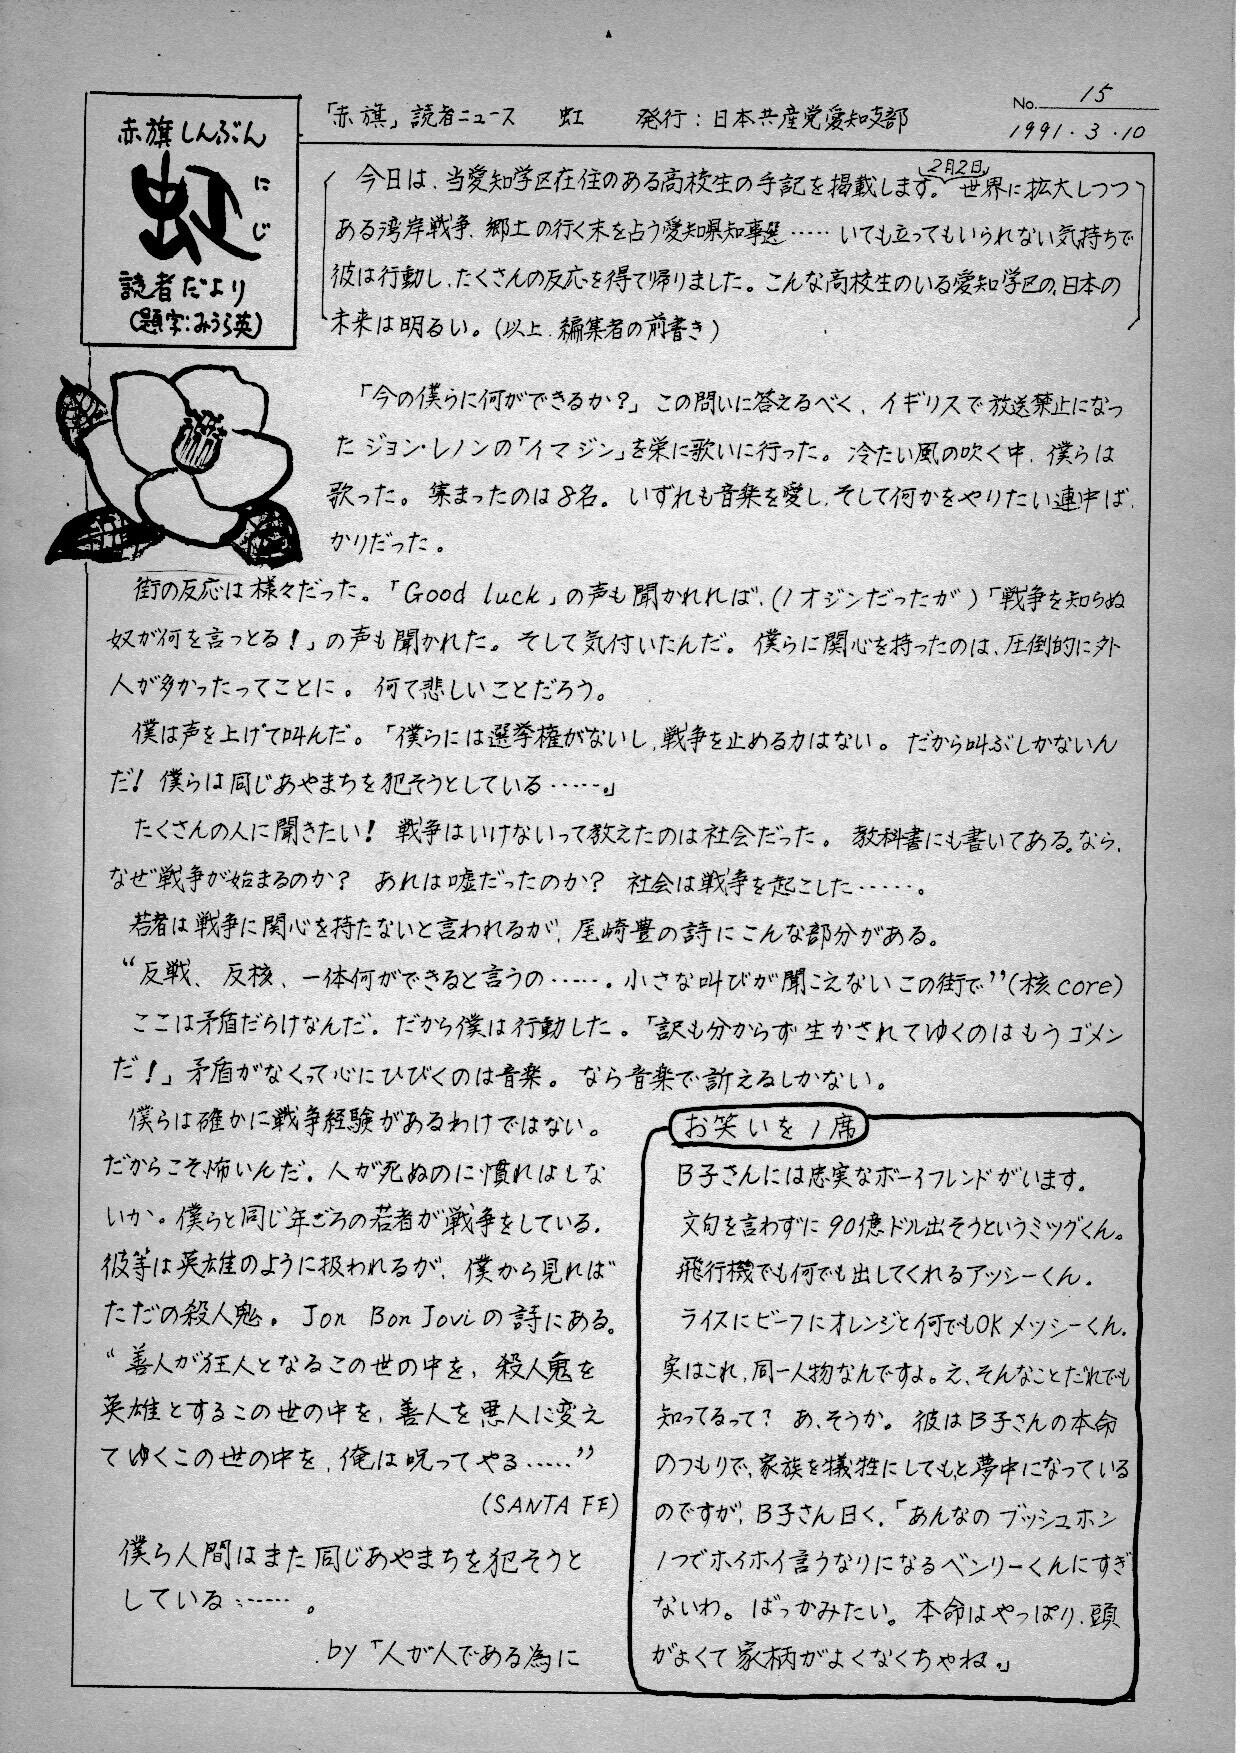 No. 15
1991・3・10
「赤旗」読者ニュース 虹 発行：日本共産党愛知支部
赤旗しんぶん
虹
にじ
読者だより
(題字:みうら英)
今日は、当愛知学区在住のある高校生の手記を掲載します。2月2日、世界に拡大しつつ
ある湾岸戦争、郷土の行く末を占う愛知県知事選……いても立ってもいられない気持ちで
彼は行動し、たくさんの反応を得て帰りました。こんな高校生のいる愛知学区の、日本の
未来は明るい。(以上、編集者の前書き)
「今の僕らに何ができるか？」この問いに答えるべく、イギリスで放送禁止になっ
たジョン・レノンの「イマジン」を栄に歌いに行った。冷たい風の吹く中、僕らは
歌った。集まったのは8名。いずれも音楽を愛し、そして何かをやりたい連中ば
かりだった。
街の反応は様々だった。「Good luck」の声も聞かれれば、(1オジンだったが)「戦争を知らぬ
奴が何を言っとる！」の声も聞かれた。そして気付いたんだ。僕らに関心を持ったのは、圧倒的に外
人が多かったってことに。何て悲しいことだろう。
僕は声を上げて叫んだ。「僕らには選挙権がないし、戦争を止める力はない。だから叫ぶしかないん
だ！僕らは同じあやまちを犯そうとしている……。」
たくさんの人に聞きたい！戦争はいけないって教えたのは社会だった。教科書にも書いてある。なら、
なぜ戦争が始まるのか？あれは嘘だったのか？社会は戦争を起こした……。
若者は戦争に関心を持たないと言われるが、尾崎豊の詩にこんな部分がある。
“反戦、反核、一体何ができると言うの……。小さな叫びが聞こえないこの街で”(核core)
ここは矛盾だらけなんだ。だから僕は行動した。「訳も分からず生かされてゆくのはもうゴメン
だ！」矛盾がなくって心にひびくのは音楽。なら音楽で訴えるしかない。
僕らは確かに戦争経験があるわけではない。
だからこそ怖いんだ。人が死ぬのに慣れはしな
いか。僕らと同じ年ごろの若者が戦争をしている。
彼等は英雄のように扱われるが、僕から見れば
ただの殺人鬼。Jon Bon Joviの詩にある。
“善人が狂人となるこの世の中を、殺人鬼を
英雄とするこの世の中を、善人を悪人に変え
てゆくこの世の中を、俺は呪ってやる……”
(SANTA FE)
僕ら人間はまた同じあやまちを犯そうと
している……。
by「人が人である為に
お笑いを1席
B子さんには忠実なボーイフレンドがいます。
文句を言わずに90億ドル出そうというミツグくん。
飛行機でも何でも出してくれるアッシーくん。
ライスにビーフにオレンジと何でもOKメッシーくん。
実はこれ、同一人物なんですよ。え、そんなことだれでも
知ってるって？あ、そうか。彼はB子さんの本命
のつもりで、家族を犠牲にしても、と夢中になっている
のですが、B子さん曰く、「あんなのブッシュホン
1つでホイホイ言うなりになるベンリーくんにすぎ
ないわ。ばっかみたい。本命はやっぱり、頭
がよくて家柄がよくなくちゃね。」